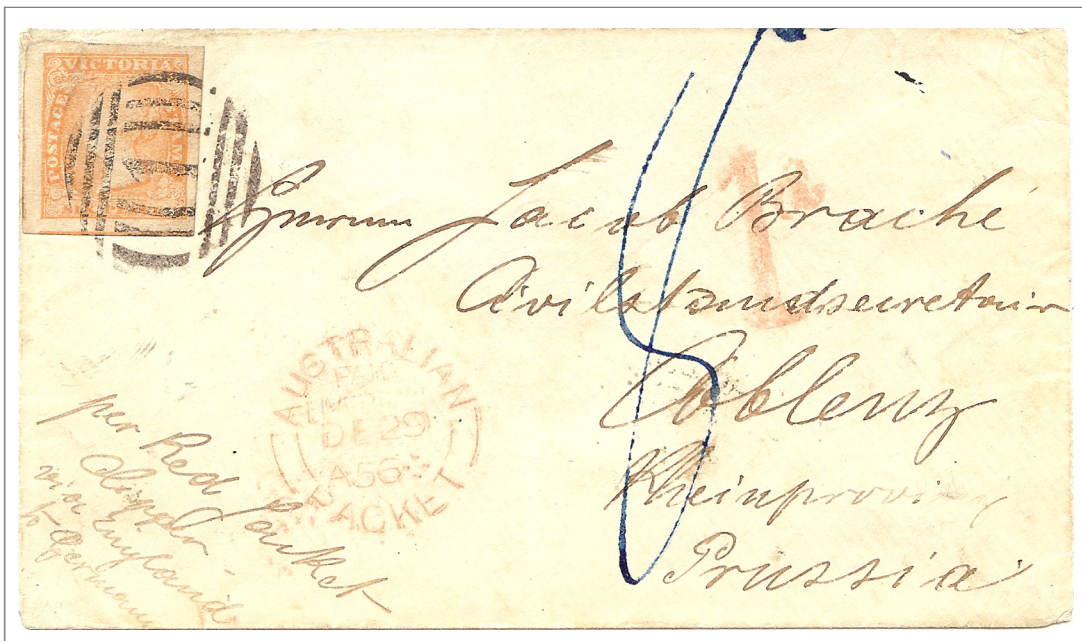 VICTORIA
POSTAGE
1
Jacob Braché
Civilstandssecretair
Coblenz
Rheinprovinz
Prussia
AUSTRALIAN
DE 29
A 56
PACKET
per Red Jacket
Clipper
via England
to Germany